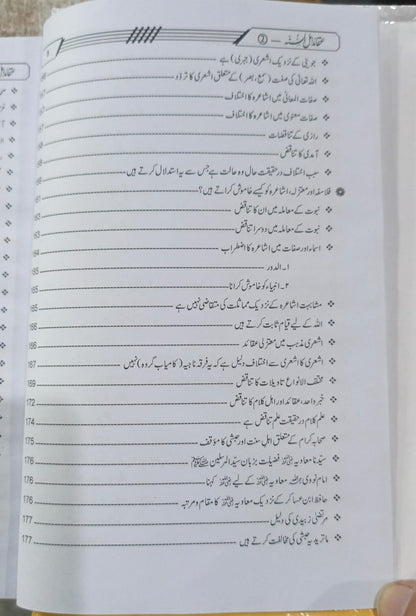 عقائد اہل السنۃ - ②
جوینی کے نزدیک اشعری (جبری) ہے
اللہ تعالیٰ کی صفت (سمع، بصر) کے متعلق اشعری کا تردد
صفات المعانی میں اشاعرہ کا اختلاف
صفات معنوی میں اشاعرہ کا اختلاف
رازی کے تناقضات
آمدی کا تناقض
سبب اختلاف در حقیقت حال وہ حالت ہے جس سے یہ استدلال کرتے ہیں
فلاسفہ اور معتزلہ، اشاعرہ کو کیسے خاموش کراتے ہیں؟
نبوت کے معاملہ میں ان کا تناقض
نبوت کے معاملہ میں دوسرا تناقض
اسماء اور صفات میں اشاعرہ کا اضطراب
۱۔ الدور
۲۔ انبیاء کو خاموش کرانا
مشابہت اشاعرہ کے نزدیک مماثلت کی متقاضی نہیں ہے
اللہ کے لیے قیام ثابت کرتے ہیں
اشعری مذہب میں معتزلی عقائد 166
اشعری کا اشعری سے اختلاف دلیل ہے کہ یہ فرقہ ناجیہ (کامیاب گروہ) نہیں 167
مختلف الانواع تاویلات کا تناقض 169
خبر واحد، عقائد اور اہل کلام کا تناقض 172
علم کلام در حقیقت علم تناقض ہے 174
صحابہ کرام کے متعلق اہل سنت اور حبشی کا مؤقف 175
سیدنا معاویہ رضی اللہ عنہ فضیلت بزبان سید المرسلین ﷺ 176
امام نووی رحمہ اللہ معاویہ رضی اللہ عنہ کے لیے رضی اللہ عنہ کہنا 176
حافظ ابن عساکر کے نزدیک معاویہ رضی اللہ عنہ کا مقام و مرتبہ 176
مرتضیٰ زبیدی کی دلیل 177
ماتریدیہ حبشی کی مخالفت کرتے ہیں 177